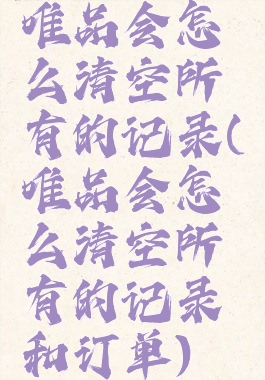 唯品会怎
么清空所
有的记录(
唯品会怎
么清空所
有的记录
和订单)